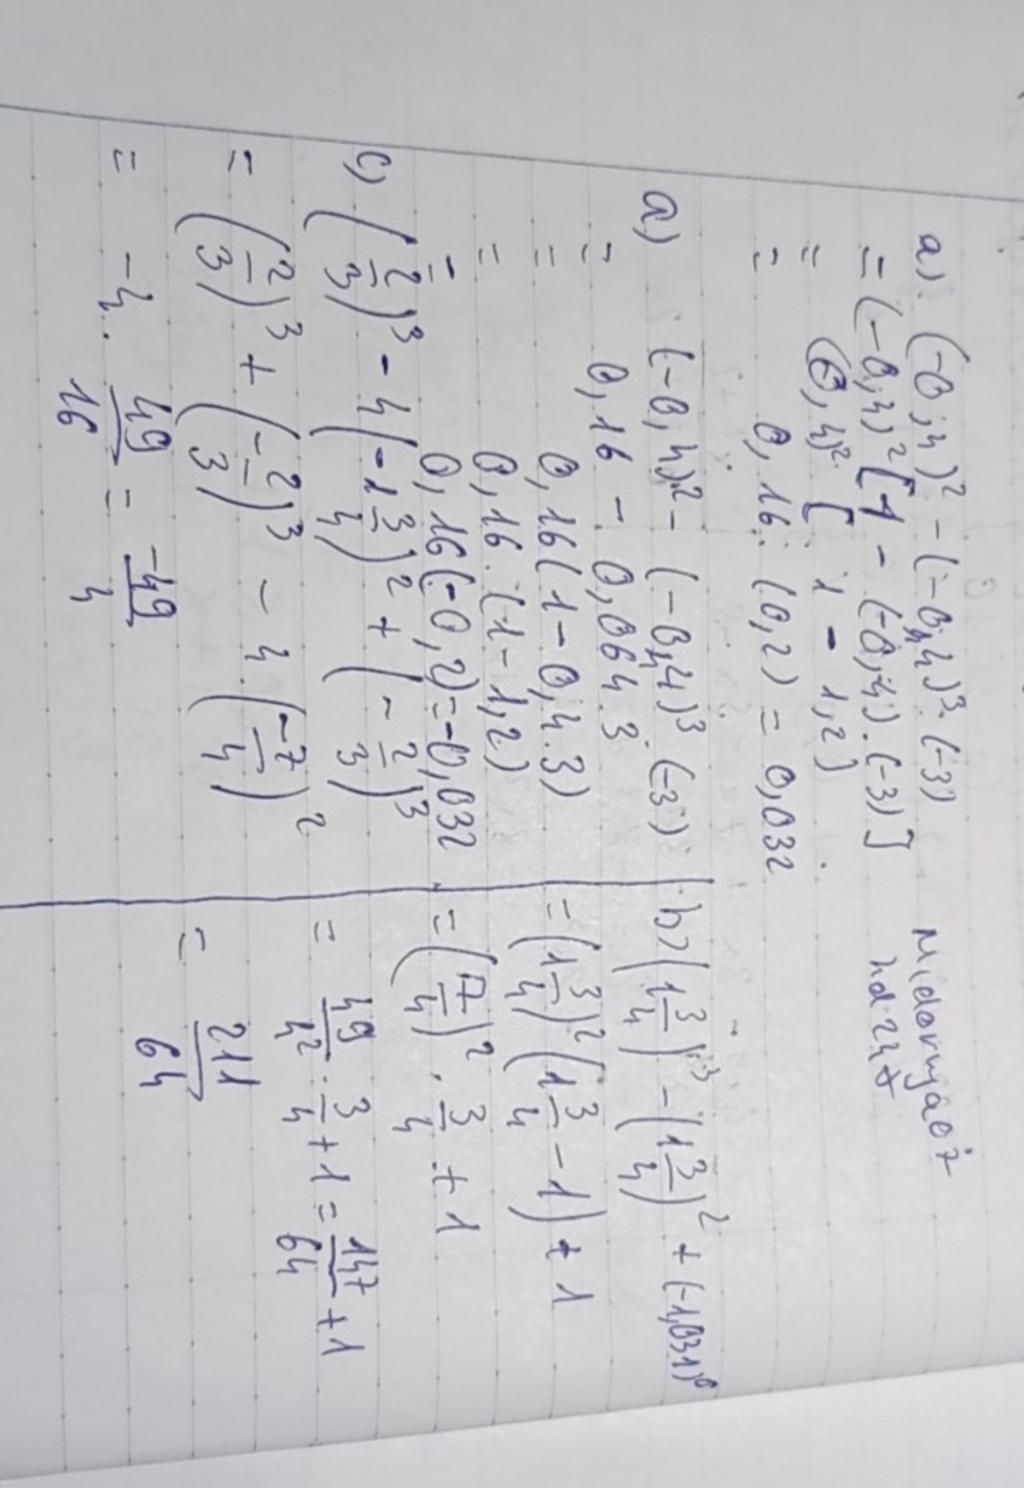 a) (-0,4)² - (-0,4)³·(-3)
= (-0,4)² [1 - (-0,4)·(-3)]
= (0,4)² [1 - 1,2]
= 0,16·(0,2) = 0,032
a) (-0,4)² - (-0,4)³·(-3)
= 0,16 - 0,064·3
= 0,16(1 - 0,4·3)
= 0,16·(1 - 1,2)
= 0,16(-0,2) = -0,032
c) (2/3)³ - 4(-1 3/4)² + (-2/3)³
= (2/3)³ + (-2/3)³ - 4·(-7/4)²
= -4·49/16 = -49/4
b) (1 3/4)³ - (1 3/4)² + (-1,031)⁰
= (1 3/4)² (1 3/4 - 1) + 1
= (7/4)² · 3/4 + 1
= 49/4² · 3/4 + 1 = 147/64 + 1
= 211/64